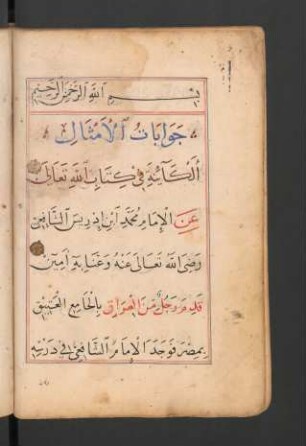 بسم الله الرحمن الرحيم
جوابات الأمثال
الكائنة في كتاب الله تعالى
عن الإمام محمد ابن إدريس الشافعي
رضى الله تعالى عنه وعنابه امين
قدم رجل من العراق بالجامع العتيق
بمصر فوجد الإمام الشافعي في درسه